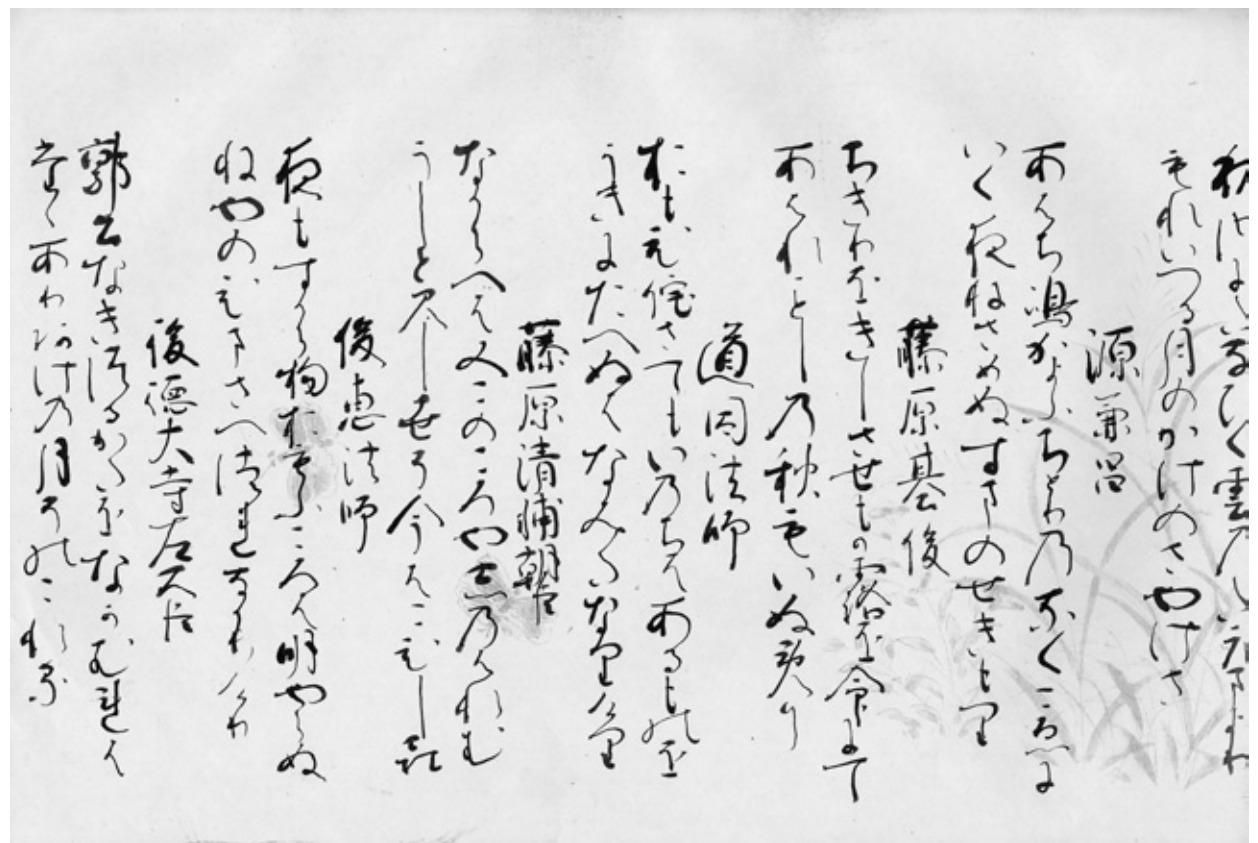 秋風にたなひく雲のたえまより
もれいつる月のかけのさやけさ
源兼昌
あはち嶋かよふちとりのなくこゑに
いく夜ねさめぬすまのせきもり
藤原基俊
ちきりをきしさせもか露を命にて
あはれことしの秋もいぬめり
道因法師
おもひ侘さてもいのちはあるものを
うきにたへぬはなみたなりけり
藤原清輔朝臣
なからへは又このころやしのはれむ
うしと见し世そ今はこひしき
俊恵法師
夜もすから物おもふころは明やらぬ
ねやのひまさへつれなかりけり
後徳大寺左大臣
郭公なきつるかたをなかむれは
たゝありあけの月そのこれる